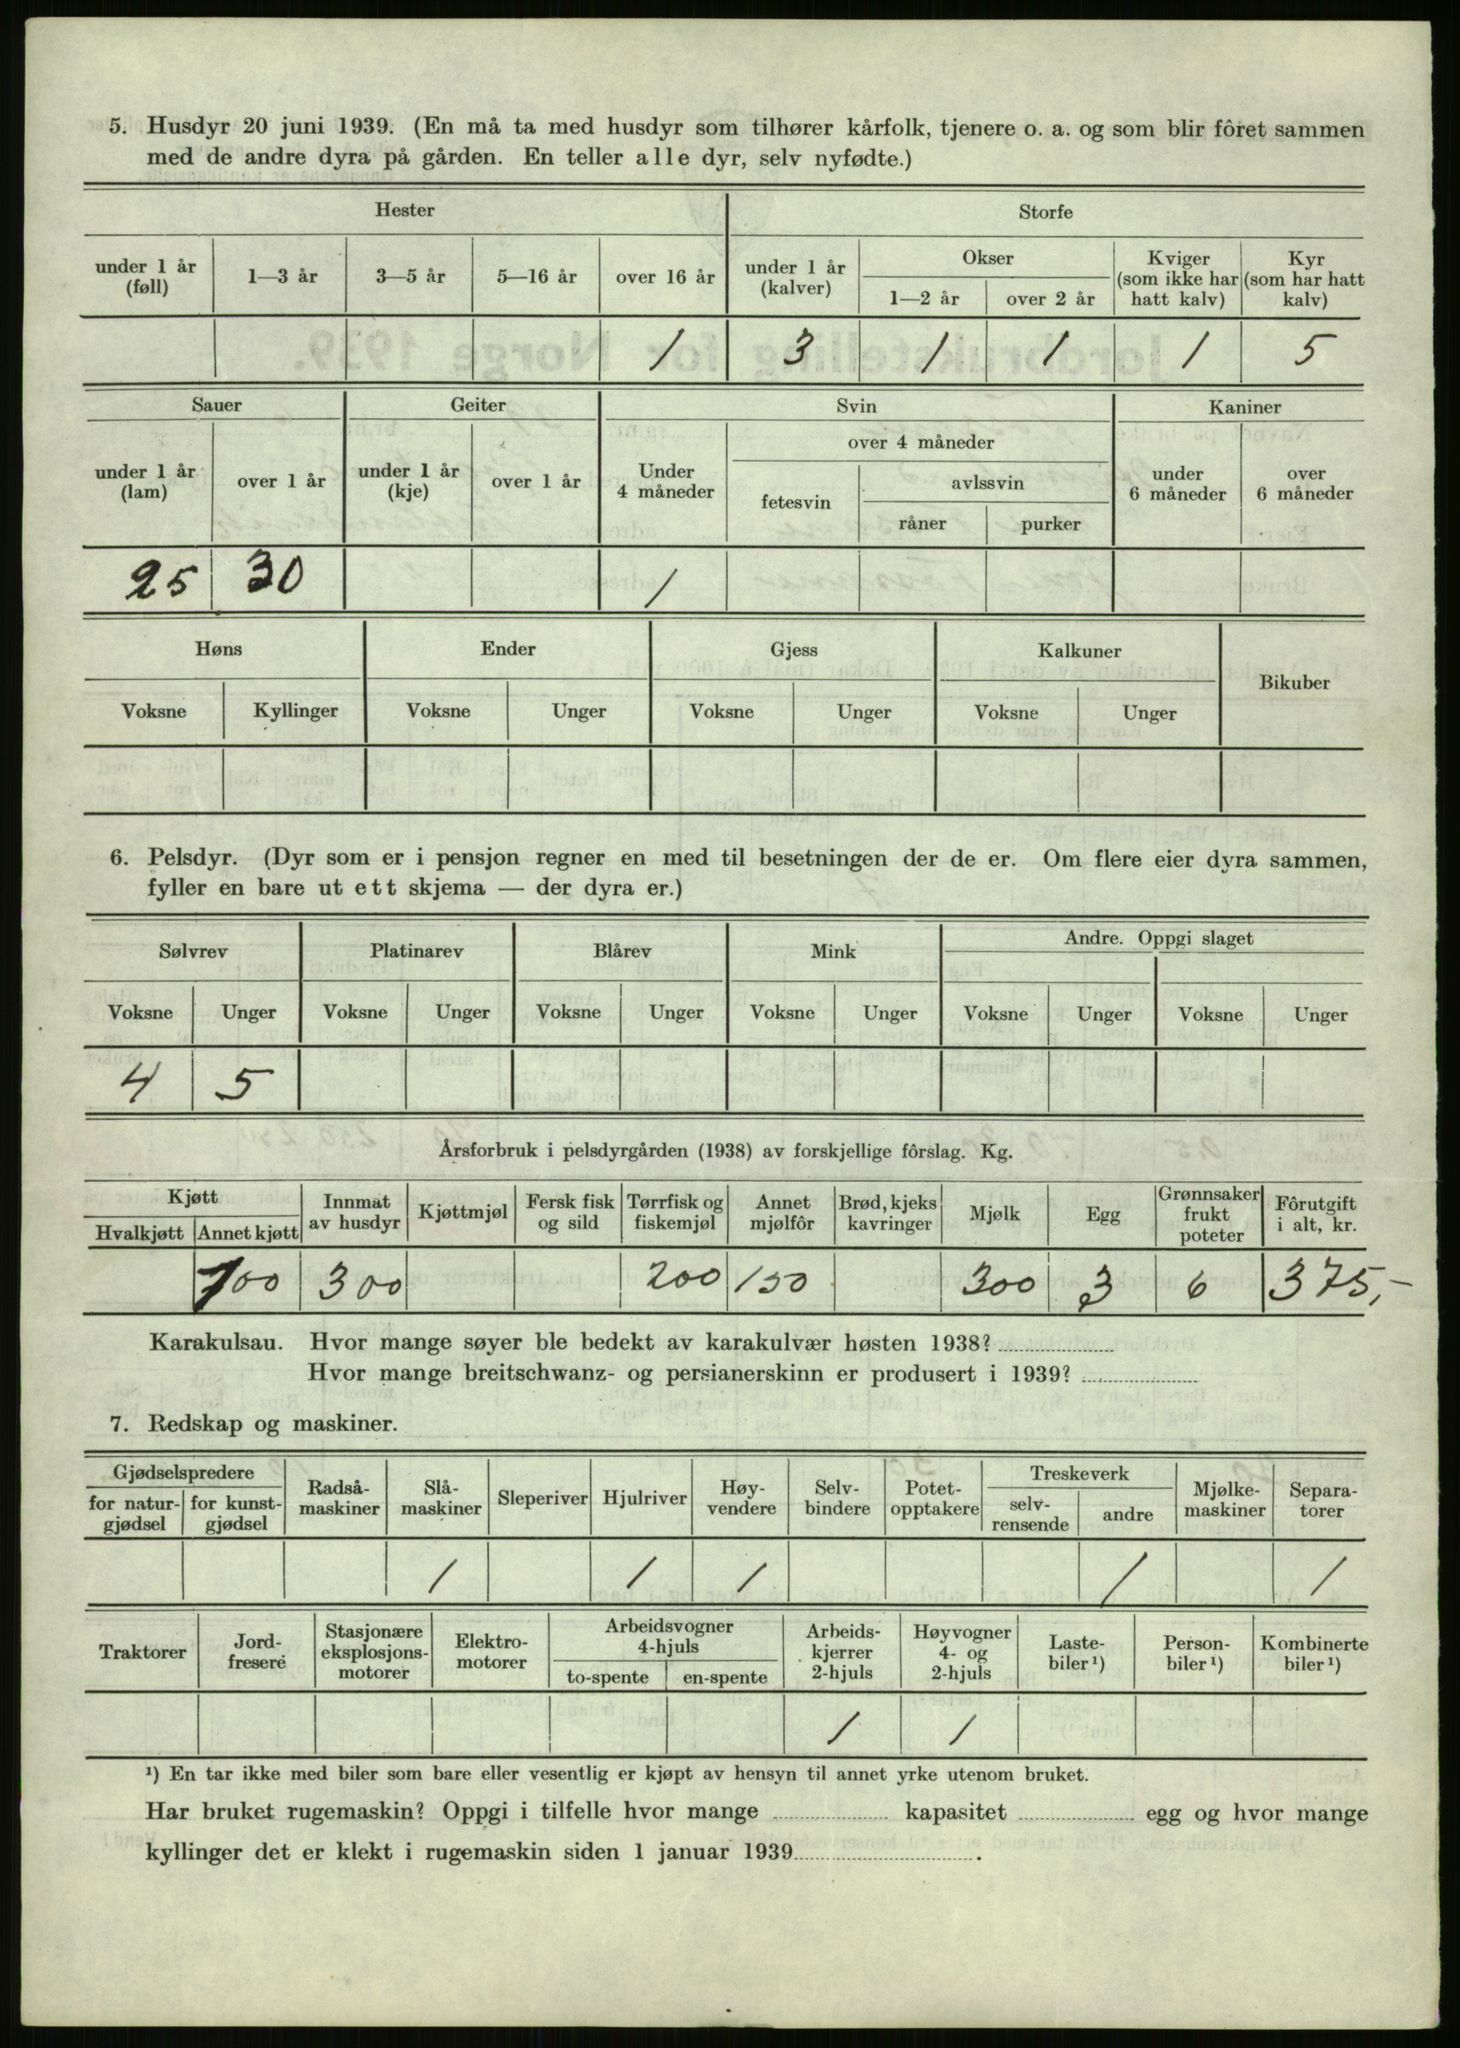 5. Husdyr 20 juni 1939. (En må ta med husdyr som tilhører kårfolk, tjenere o. a. og som blir fôret sammen
med de andre dyra på gården. En teller alle dyr, selv nyfødte.)
Hester Storfe
under 1 år (føll) 1—3 år 3—5 år 5—16 år over 16 år under 1 år (kalver) Okser 1—2 år over 2 år Kviger (som ikke har hatt kalv) Kyr (som har hatt kalv)
1 3 1 1 1 5
Sauer Geiter Svin Kaniner
over 4 måneder
under 1 år (lam) over 1 år under 1 år (kje) over 1 år Under 4 måneder fetesvin avlssvin råner purker under 6 måneder over 6 måneder
25 30 1
Høns Ender Gjess Kalkuner Bikuber
Voksne Kyllinger Voksne Unger Voksne Unger Voksne Unger
6. Pelsdyr. (Dyr som er i pensjon regner en med til besetningen der de er. Om flere eier dyra sammen,
fyller en bare ut ett skjema — der dyra er.)
Sølvrev Platinarev Blårev Mink Andre. Oppgi slaget
Voksne Unger Voksne Unger Voksne Unger Voksne Unger Voksne Unger Voksne Unger
4 5
Årsforbruk i pelsdyrgården (1938) av forskjellige fôrslag. Kg.
Kjøtt Hvalkjøtt Annet kjøtt Innmat av husdyr Kjøttmjøl Fersk fisk og sild Tørrfisk og fiskemjøl Annet mjølfôr Brød, kjeks kavringer Mjølk Egg Grønnsaker frukt poteter Fôrutgift i alt, kr.
100 300 200 150 300 3 6 375,-
Karakulsau. Hvor mange søyer ble bedekt av karakulvær høsten 1938?
Hvor mange breitschwanz- og persianerskinn er produsert i 1939?
7. Redskap og maskiner.
Gjødselspredere for natur-gjødsel for kunst-gjødsel Radså-maskiner Slå-maskiner Sleperiver Hjulriver Høy-vendere Selv-bindere Potet-opptakere Treskeverk selv-rensende andre Mjølke-maskiner Separa-torer
1 1 1 1 1
Traktorer Jord-fresere Stasjonære eksplosjons-motorer Elektro-motorer Arbeidsvogner 4-hjuls to-spente en-spente Arbeids-kjerrer 2-hjuls Høyvogner 4- og 2-hjuls Laste-biler¹) Person-biler¹) Kombinerte biler¹)
1 1
¹) En tar ikke med biler som bare eller vesentlig er kjøpt av hensyn til annet yrke utenom bruket.
Har bruket rugemaskin? Oppgi i tilfelle hvor mange kapasitet egg og hvor mange
kyllinger det er klekt i rugemaskin siden 1 januar 1939 .